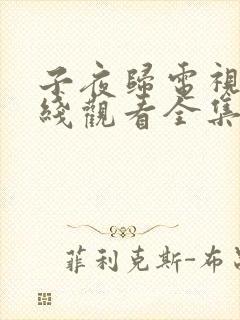 子夜歸電視
綫觀看全集
菲利克斯-布